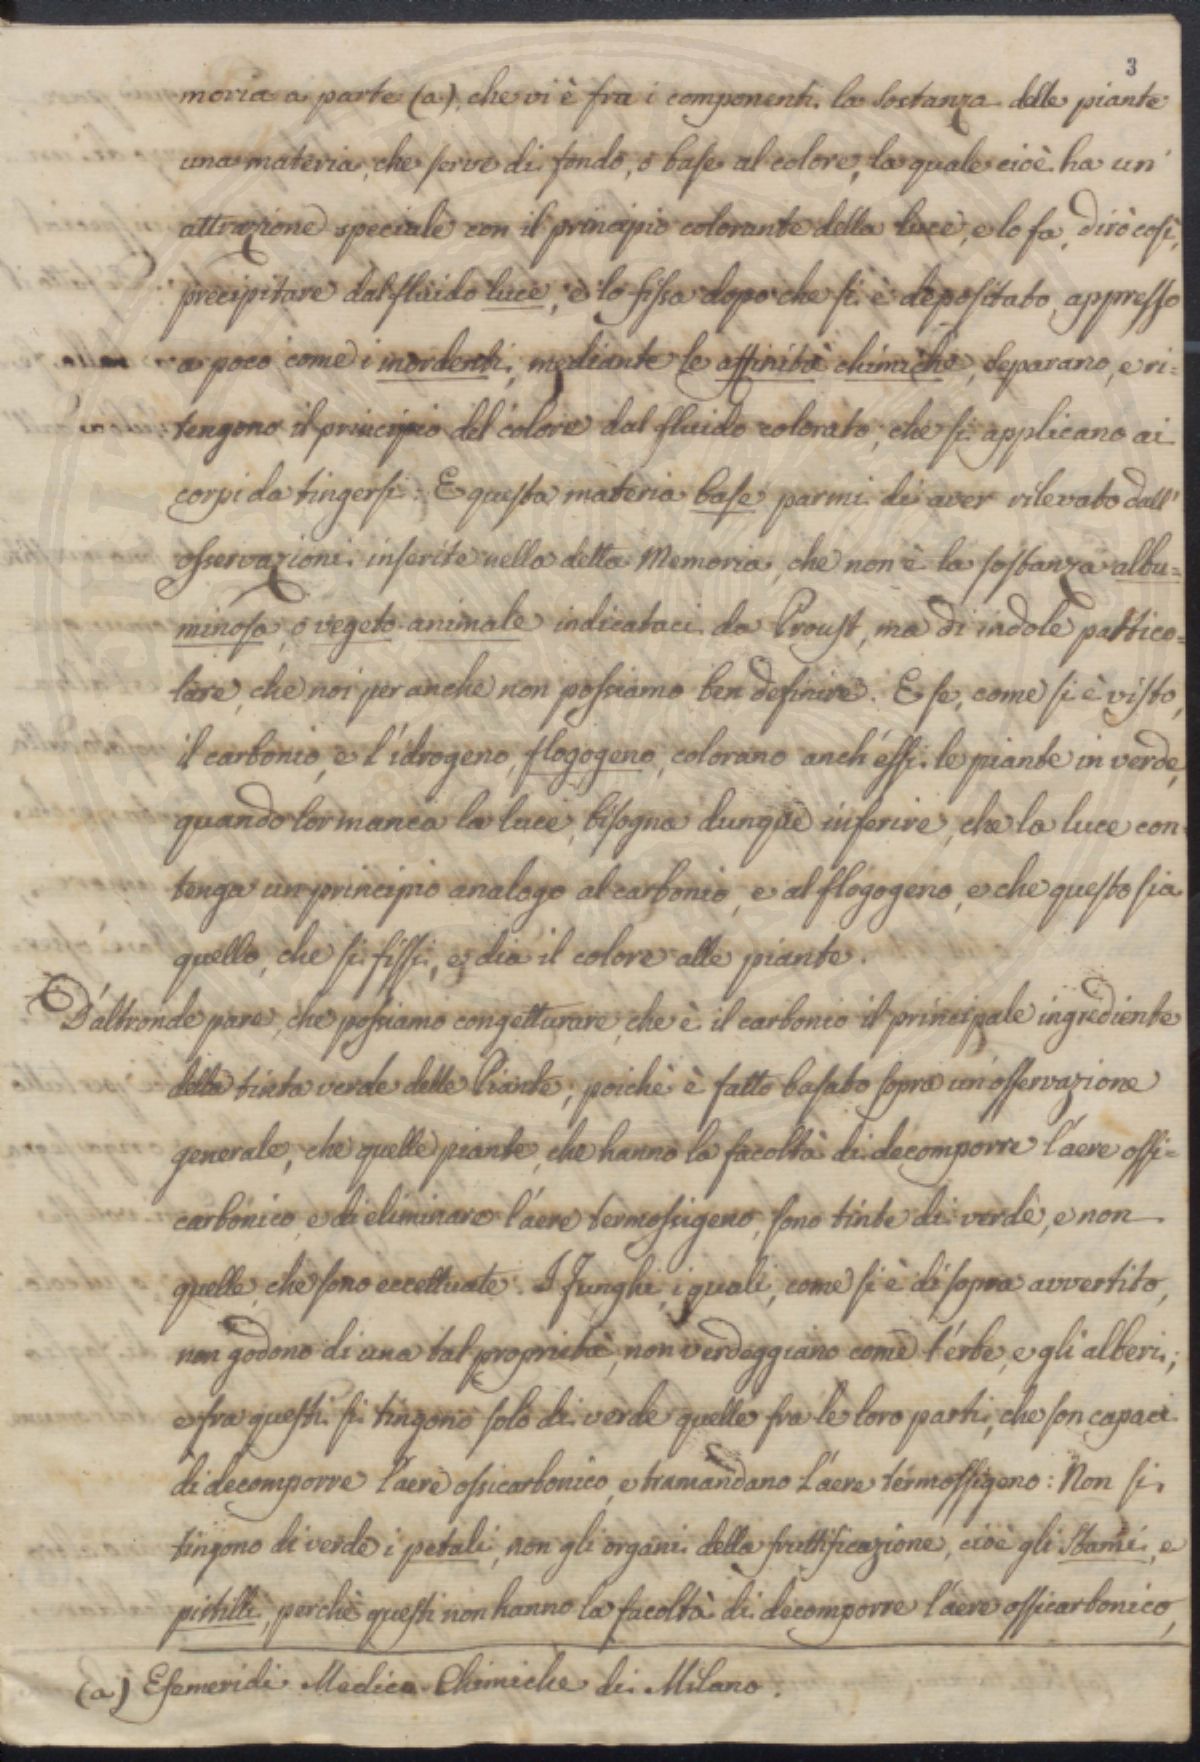 3
moria a parte (a), che vi è fra i componenti la sostanza delle piante
una materia, che serve di fondo, o base al colore, la quale cioè ha un'
attrazione speciale con il principio colorante della luce, e lo fa, dirò così,
precipitare dal fluido luce, e lo fissa dopo che si è depositato, appresso
a poco come i mordenti, mediante le affinità chimiche, separano, e ri=
tengono il principio del colore dal fluido colorato, che si applicano ai
corpi da tingersi: E questa materia base parmi di aver rilevato dall'
osservazioni inserite nella detta Memoria, che non è la sostanza albu=
minosa, o vegeto-animale indicataci da Proust, ma di indole partico=
lare, che noi per anche non possiamo ben definire. E se, come si è visto,
il carbonio, e l'idrogeno, flogogeno, colorano anch'essi le piante in verde,
quando lor manca la luce, bisogna dunque inferire, che la luce con=
tenga un principio analogo al carbonio, e al flogogeno, e che questo sia
quello, che si fissi, e dia il colore alle piante.
D'altronde pare, che possiamo congetturare, che è il carbonio il principale ingrediente
della tinta verde delle Piante, poichè è fatto basato sopra un'osservazione
generale, che quelle piante, che hanno la facoltà di decomporre l'aere ossi=
carbonico, e di eliminare l'aere termossigeno, sono tinte di verde, e non
quelle, che sono eccettuate. I Funghi, i quali, come si è di sopra avvertito,
non godono di una tal proprietà, non verdeggiano come l'erbe, e gli alberi;
e fra questi si tingono solo di verde quelle fra le loro parti, che son capaci
di decomporre l'aere ossicarbonico, e tramandano l'aere termossigeno: Non si
tingono di verde i petali, non gli organi della fruttificazione, cioè gli Stami, e
pistilli, perchè questi non hanno la facoltà di decomporre l'aere ossicarbonico,
(a) Efemeridi Medico-Chimiche di Milano.